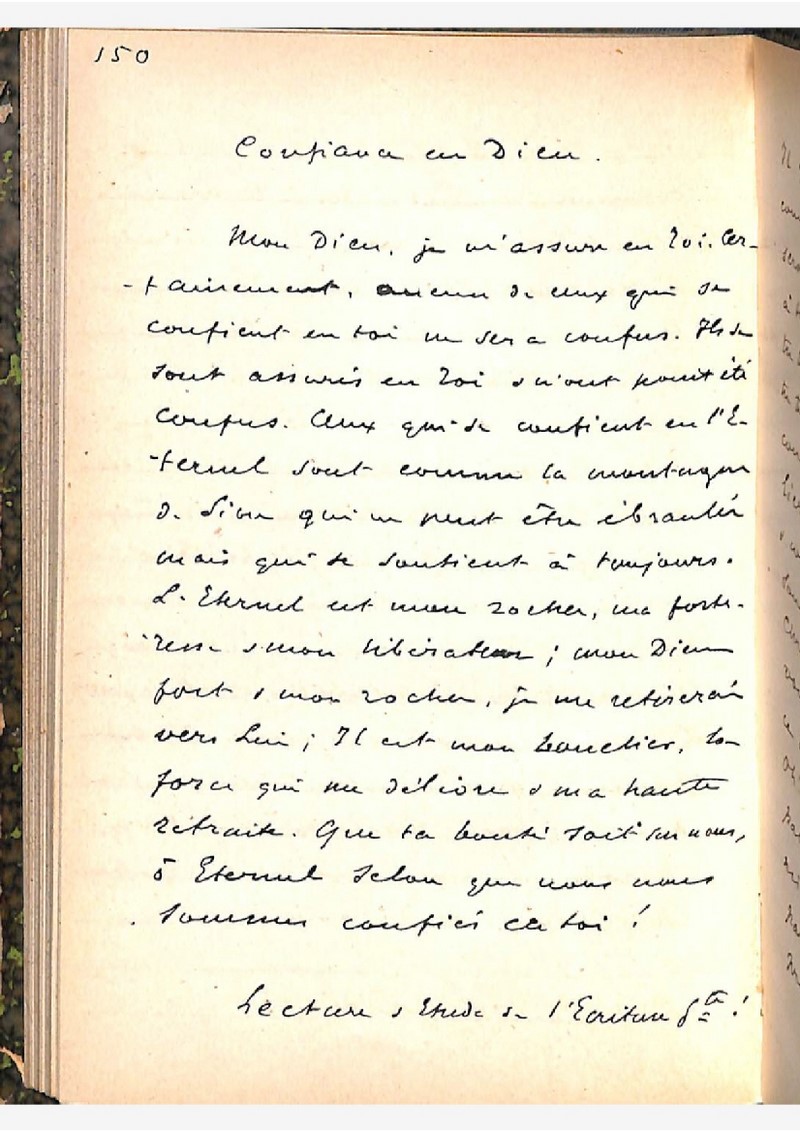 150
Confiance en Dieu.
Mon Dieu, je m'assure en Toi. Cer-
-tainement, aucun de ceux qui se
confient en toi ne sera confus. Ils se
sont assurés en Toi & n'ont point été
confus. Ceux qui se confient en l'E-
-ternel sont comme la montagne
de Sion qui ne peut être ébranlée
mais qui se soutient à toujours.
L'Eternel est mon rocher, ma forte-
resse & mon libérateur ; mon Dieu
fort & mon rocher, je me retirerai
vers Lui ; Il est mon bouclier, la
force qui me délivre & ma haute
retraite. Que ta bonté soit sur nous,
ô Eternel selon que nous nous
sommes confiés en toi !
Lecture & Etude de l'Ecriture Ste !